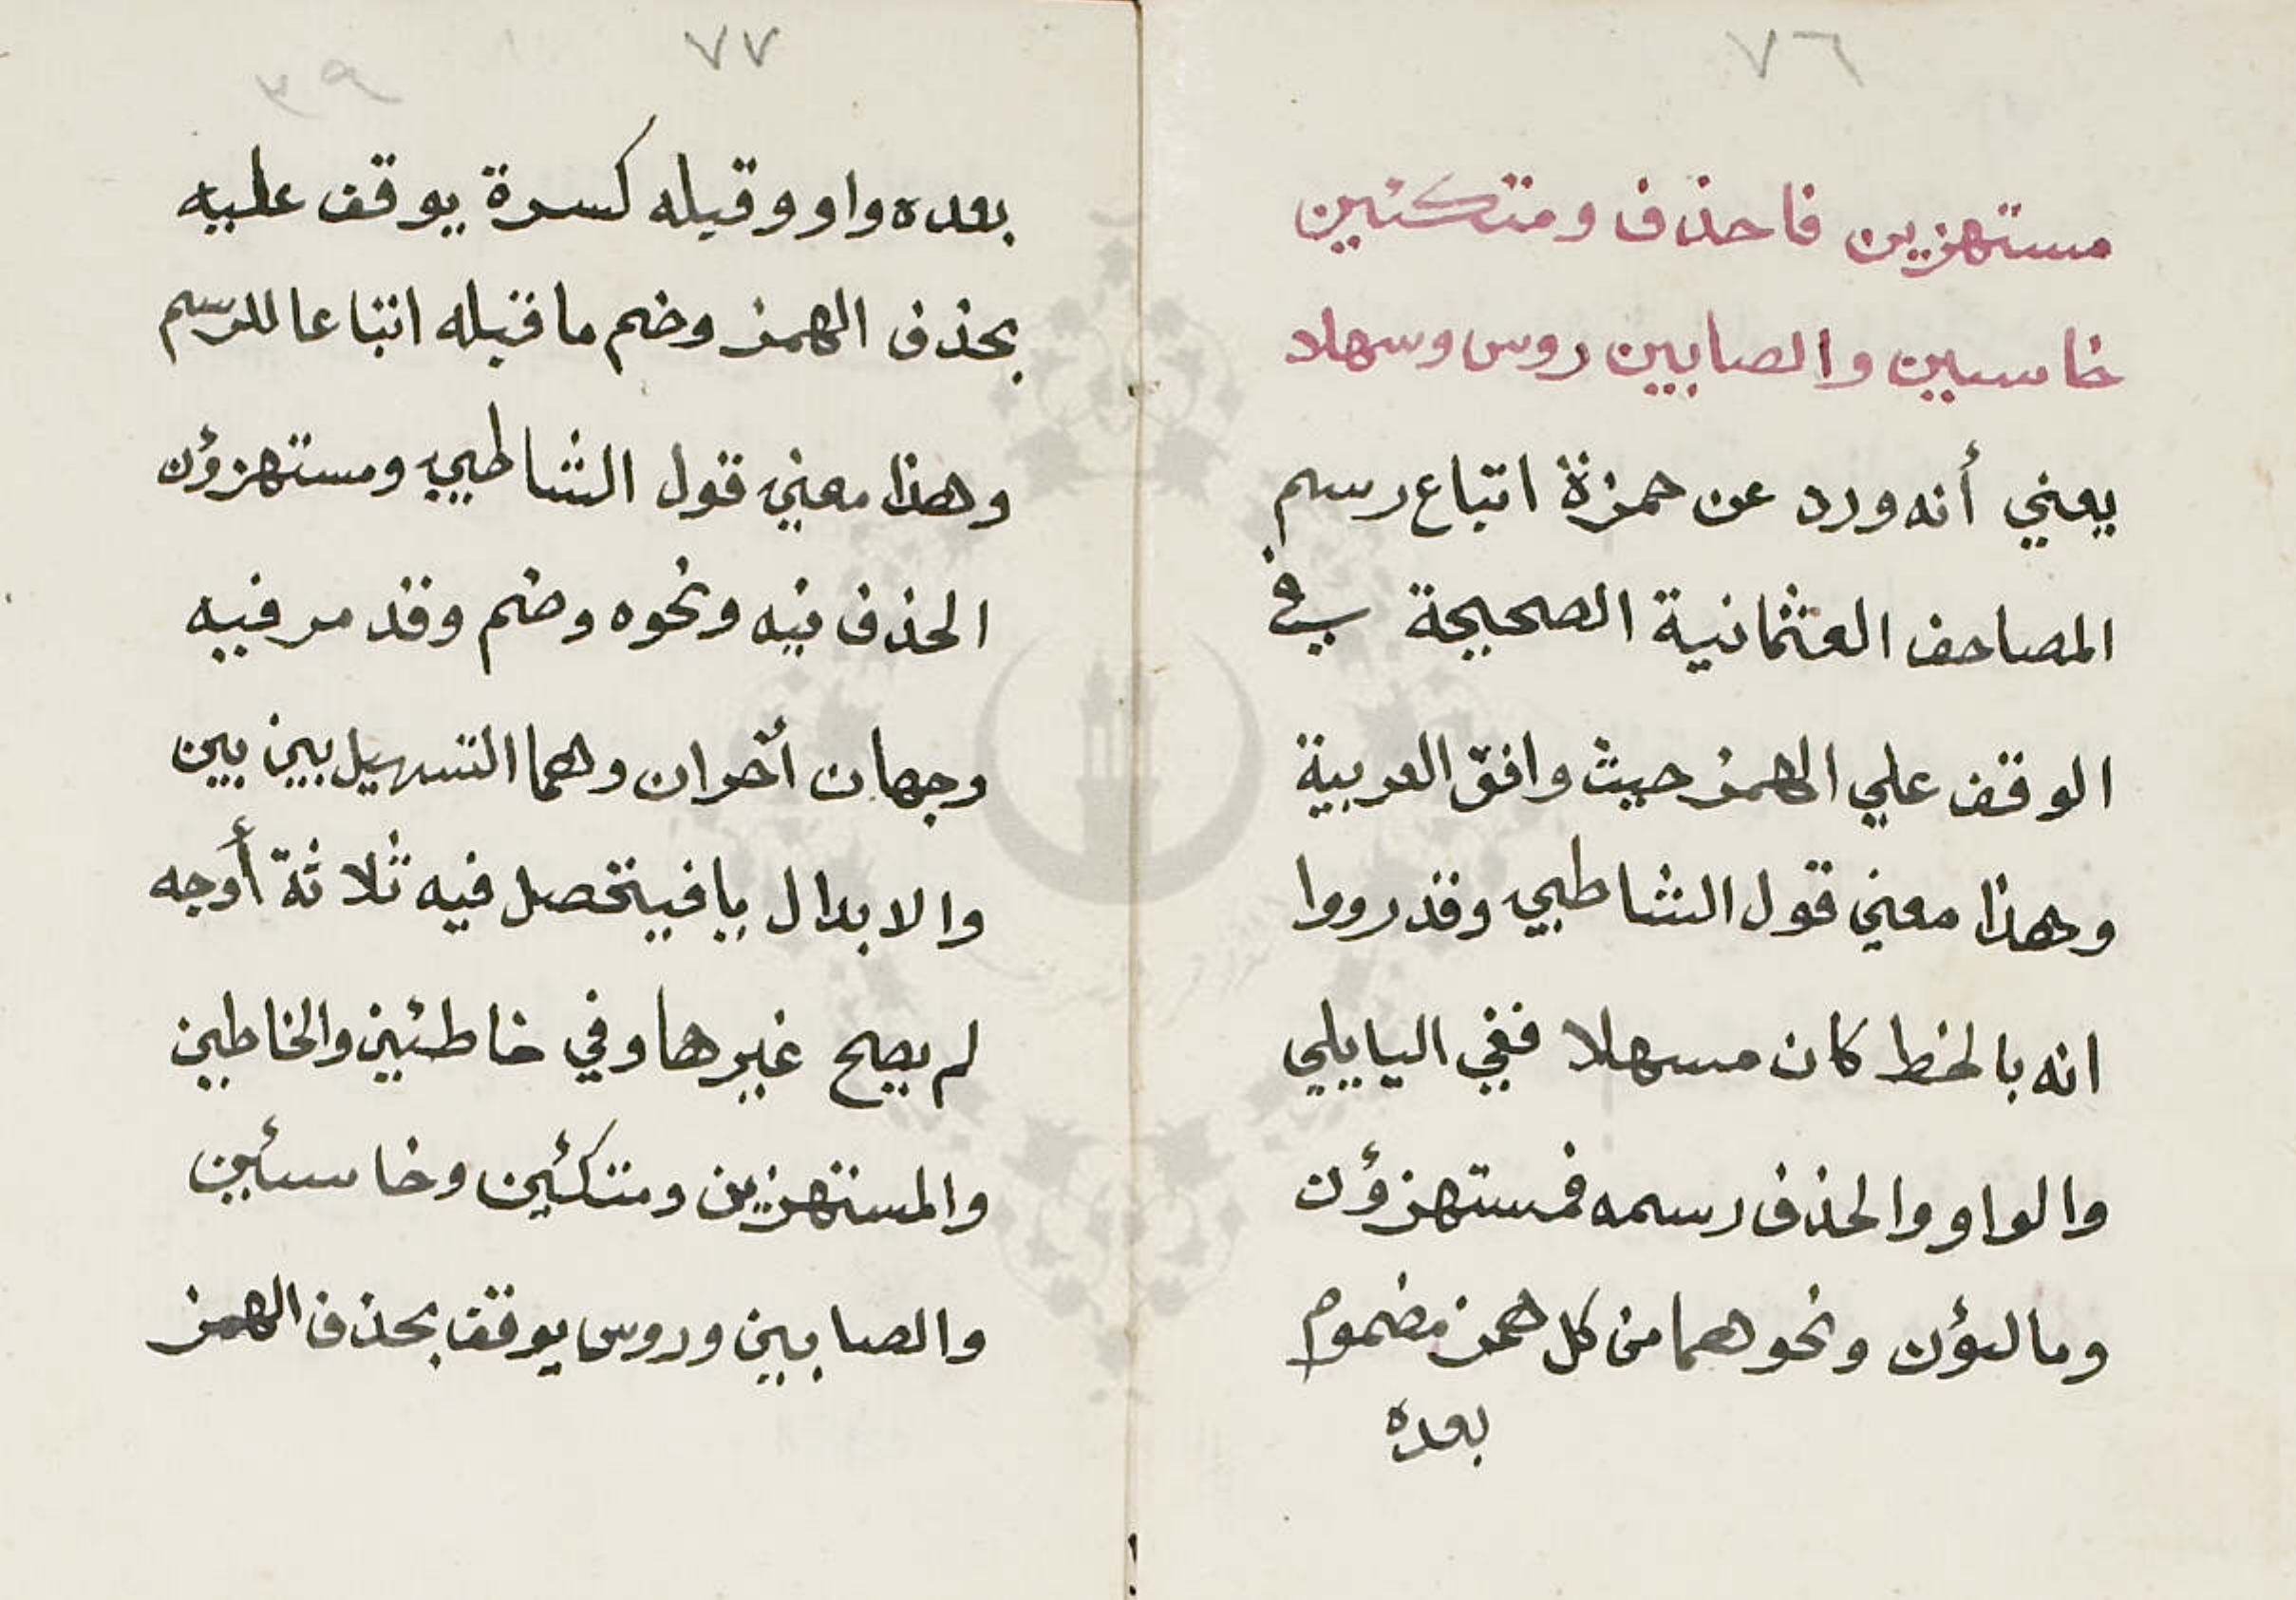 ٧٦
مستهزين فاحذف ومتكئين
خاسيين والصابيين روس وسهلا
يعني أنه ورد عن حمزة اتباع رسم
المصاحف العثمانية الصحيحة في
الوقف علي الهمز حيث وافق العربية
وهذا معني قول الشاطبي وقد رووا
انه بالخط كان مسهلا ففي اليا يلي
والواو والحذف رسمه فمستهزؤن
ومالؤن ونحوهما من كل همز مضموم
بعده
٧٧
٣٩
بعده واو وقبله كسرة يوقف عليه
بحذف الهمز وضم ما قبله اتباعا للرسم
وهذا معني قول الشاطبي ومستهزؤن
الحذف فيه ونحوه وضم وقد مر فيه
وجهان أخران وهما التسهيل بين بين
والابدال يا فيتحصل فيه ثلاثة أوجه
لم يصح غيرها وفي خاطئين والخاطين
والمستهزين ومتكئين وخاسئين
والصابيين وروس يوقف بحذف الهمز